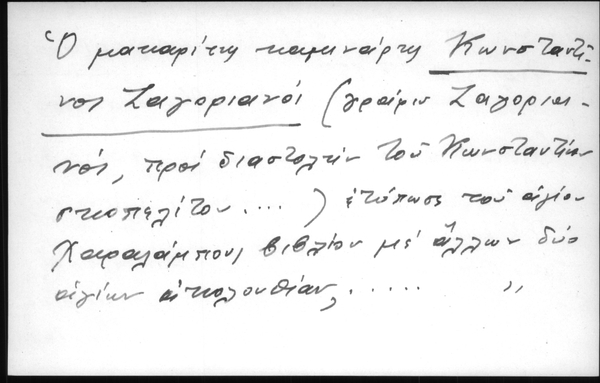 Ὁ μακαρίτης καμινάρης Κωνσταντῖ-
νος Ζαγοριανός (γράφω Ζαγορια-
νός, πρός διαστολήν τοῦ Κωνσταντίνου
σκοπελίτου....) ἐτύπωσε τοῦ ἁγίου
Χαραλάμπους βιβλίον μέ ἄλλων δύο
ἁγίων ἀκολουθίαν, ..... ,,